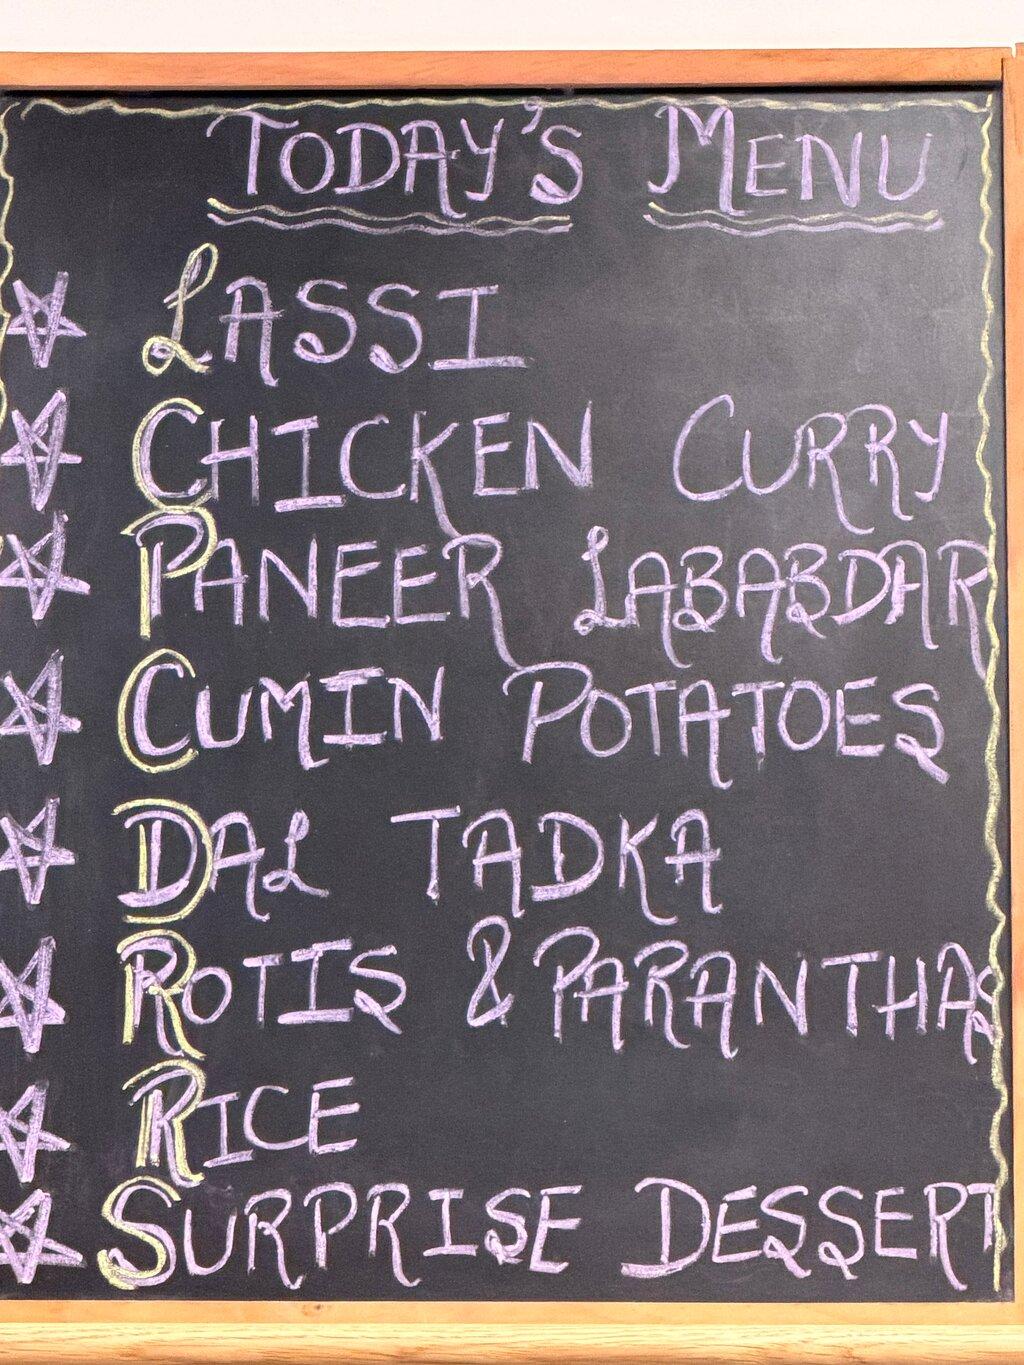 TODAY'S MENU
LASSI
CHICKEN CURRY
PANEER LABABDAR
CUMIN POTATOES
DAL TADKA
ROTIS & PARANTHAS
RICE
SURPRISE DESSERT